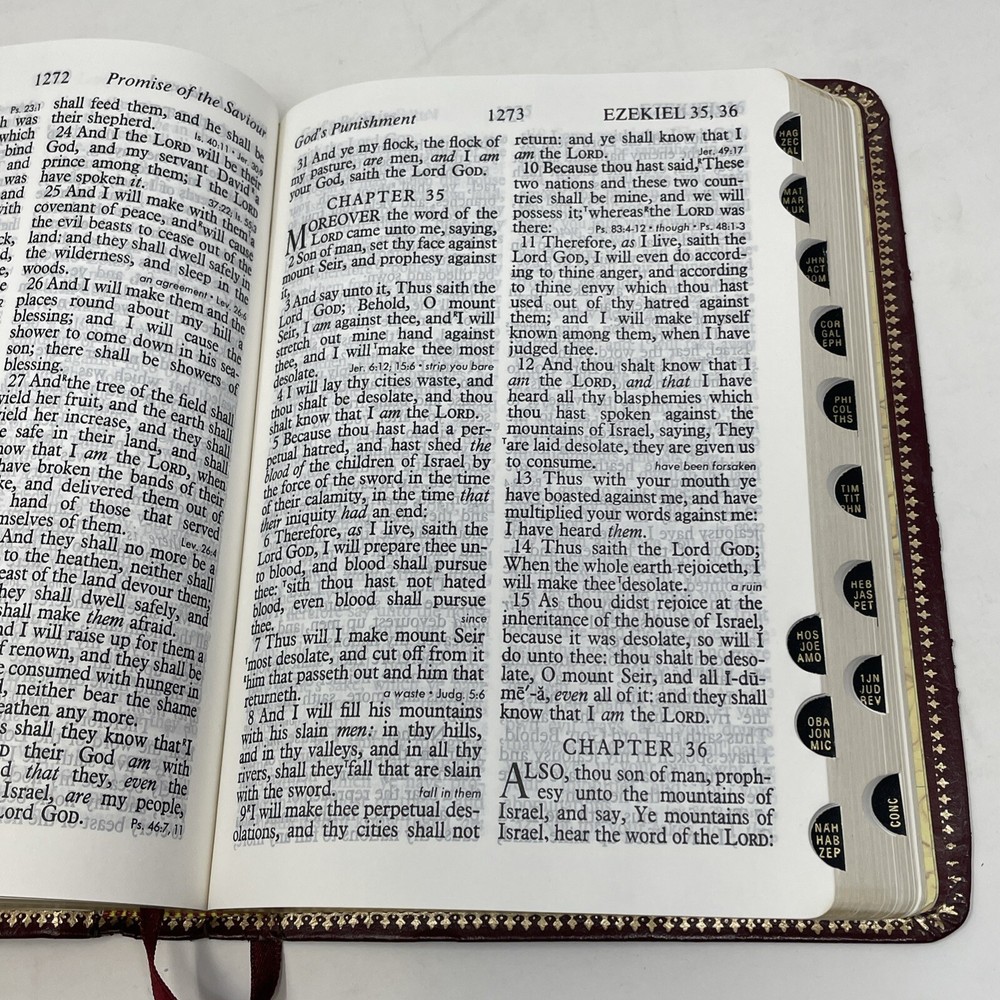 1272 Promise of the Saviour
Ps. 23:1
h was
which
bind
and
was
and
with
shall feed them, and he shall be
their shepherd. Is. 40:11 · Jer. 30:9
24 And I the LORD will be their
God, and my servant David a
prince among them; I the LORD
have spoken it. 37:22; Is. 55:3
25 And I will make with them a
covenant of peace, and will cause
the evil beasts to cease out of the
land: and they shall dwell safely in
the wilderness, and sleep in the
woods. an agreement · Lev. 26:6
26 And I will make them and the
places round about my hill a
blessing; and I will cause the
shower to come down in his sea-
son; there shall be showers of
blessing.
27 And the tree of the field shall
yield her fruit, and the earth shall
yield her increase, and they shall
e safe in their land, and shall
now that I am the LORD, when
have broken the bands of their
ke, and delivered them out of
hand of those that served
mselves of them. Lev. 26:4
And they shall no more be a
to the heathen, neither shall
east of the land devour them;
hey shall dwell safely, and
shall make them afraid.
nd I will raise up for them a
f renown, and they shall be
e consumed with hunger in
l, neither bear the shame
eathen any more.
s shall they know that I
D their God am with
d that they, even the
Israel, are my people,
Lord GOD. Ps. 46:7, 11
God's Punishment 1273 EZEKIEL 35, 36
31 And ye my flock, the flock of
my pasture, are men, and I am
your God, saith the Lord GOD.
CHAPTER 35
MOREOVER the word of the
LORD came unto me, saying,
2 Son of man, set thy face against
mount Seir, and prophesy against
it,
3 And say unto it, Thus saith the
Lord GOD; Behold, O mount
Seir, I am against thee, and I will
stretch out mine hand against
thee, and I will make thee most
desolate. Jer. 6:12; 15:6 · strip you bare
4 I will lay thy cities waste, and
thou shalt be desolate, and thou
shalt know that I am the LORD.
5 Because thou hast had a per-
petual hatred, and hast shed the
blood of the children of Israel by
the force of the sword in the time
of their calamity, in the time that
their iniquity had an end:
6 Therefore, as I live, saith the
Lord GOD, I will prepare thee un-
to blood, and blood shall pursue
thee: sith thou hast not hated
blood, even blood shall pursue
thee. since
7 Thus will I make mount Seir
most desolate, and cut off from it
him that passeth out and him that
returneth. a waste · Judg. 5:6
8 And I will fill his mountains
with his slain men: in thy hills,
and in thy valleys, and in all thy
rivers, shall they fall that are slain
with the sword. fall in them
9 I will make thee perpetual des-
olations, and thy cities shall not
return: and ye shall know that I
am the LORD. Jer. 49:17
10 Because thou hast said, These
two nations and these two coun-
tries shall be mine, and we will
possess it; whereas the LORD was
there: Ps. 83:4-12 · though · Ps. 48:1-3
11 Therefore, as I live, saith the
Lord GOD, I will even do accord-
ing to thine anger, and according
to thine envy which thou hast
used out of thy hatred against
them; and I will make myself
known among them, when I have
judged thee.
12 And thou shalt know that I
am the LORD, and that I have
heard all thy blasphemies which
thou hast spoken against the
mountains of Israel, saying, They
are laid desolate, they are given us
to consume. have been forsaken
13 Thus with your mouth ye
have boasted against me, and have
multiplied your words against me:
I have heard them.
14 Thus saith the Lord GOD;
When the whole earth rejoiceth, I
will make thee desolate. a ruin
15 As thou didst rejoice at the
inheritance of the house of Israel,
because it was desolate, so will I
do unto thee: thou shalt be deso-
late, O mount Seir, and all I-dū-
mē´-ă, even all of it: and they shall
know that I am the LORD.
CHAPTER 36
ALSO, thou son of man, proph-
esy unto the mountains of
Israel, and say, Ye mountains of
Israel, hear the word of the LORD:
HAG
ZEC
MAL
MAT
MAR
LUK
JHN
ACT
ROM
COR
GAL
EPH
PHI
COL
THS
TIM
TIT
PHN
HEB
JAS
PET
HOS
JOE
AMO
1JN
JUD
REV
OBA
JON
MIC
CONC
NAH
HAB
ZEP